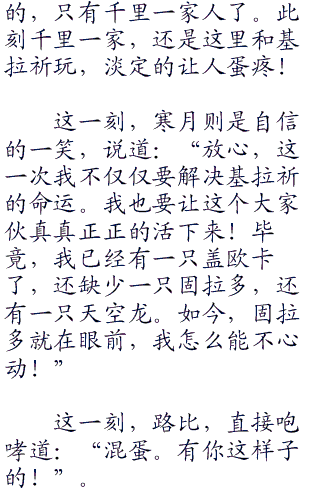 的，只有千里一家人了。此
刻千里一家，还是这里和基
拉祈玩，淡定的让人蛋疼！
这一刻，寒月则是自信
的一笑，说道：“放心，这
一次我不仅仅要解决基拉祈
的命运。我也要让这个大家
伙真真正正的活下来！毕
竟，我已经有一只盖欧卡
了，还缺少一只固拉多，还
有一只天空龙。如今，固拉
多就在眼前，我怎么能不心
动！”
这一刻，路比，直接咆
哮道：“混蛋。有你这样子
的！”。